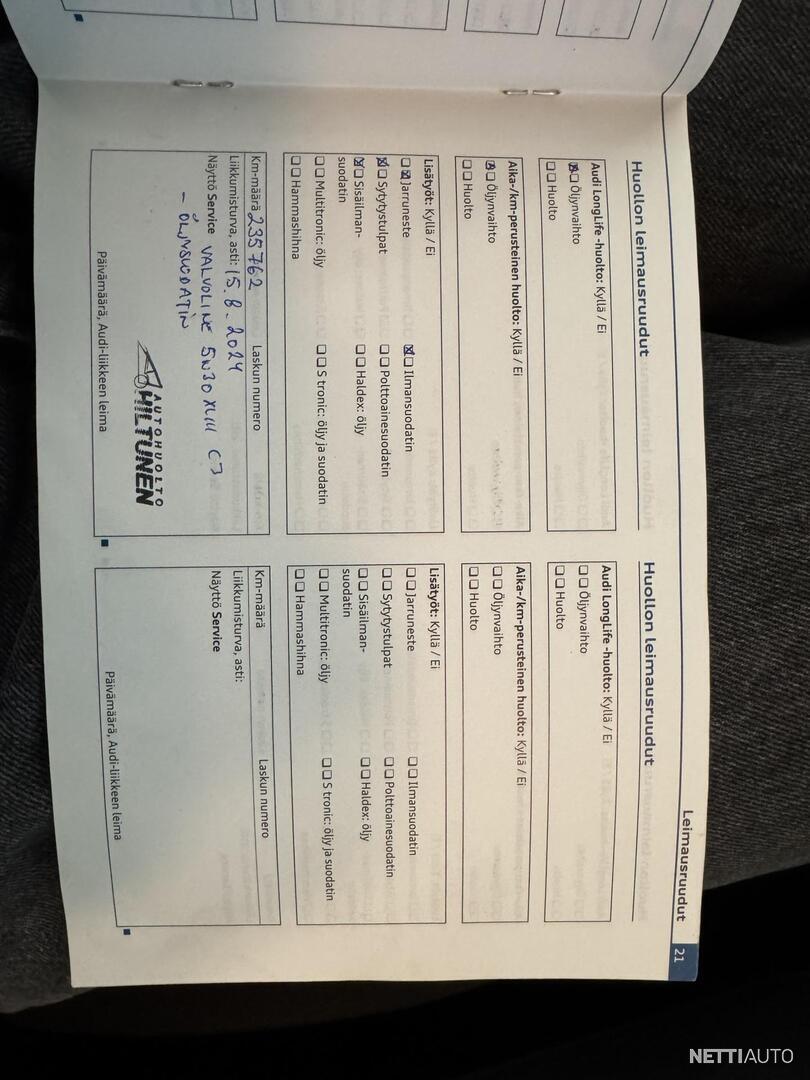 Leimausruudut
21
Huollon leimausruudut
Audi LongLife -huolto: Kyllä / Ei
Öljynvaihto
Huolto
Aika-/km-perusteinen huolto: Kyllä / Ei
Öljynvaihto
Huolto
Lisätyöt: Kyllä / Ei
Jarruneste
Ilmansuodatin
Sytytystulpat
Polttoainesuodatin
Sisäilman-
suodatin
Haldex: öljy
Multitronic: öljy
S tronic: öljy ja suodatin
Hammashihna
Km-määrä 235762
Laskun numero
Liikkumisturva, asti: 15.8.2024
Näyttö Service VALVOLINE 5W30 XLIII C3
- ÖLJYNSUODATIN
AUTOHUOLTO
HILTUNEN
Päivämäärä, Audi-liikkeen leima
Huollon leimausruudut
Audi LongLife -huolto: Kyllä / Ei
Öljynvaihto
Huolto
Aika-/km-perusteinen huolto: Kyllä / Ei
Öljynvaihto
Huolto
Lisätyöt: Kyllä / Ei
Jarruneste
Ilmansuodatin
Sytytystulpat
Polttoainesuodatin
Sisäilman-
suodatin
Haldex: öljy
Multitronic: öljy
S tronic: öljy ja suodatin
Hammashihna
Km-määrä
Laskun numero
Liikkumisturva, asti:
Näyttö Service
Päivämäärä, Audi-liikkeen leima
NETTIAUTO